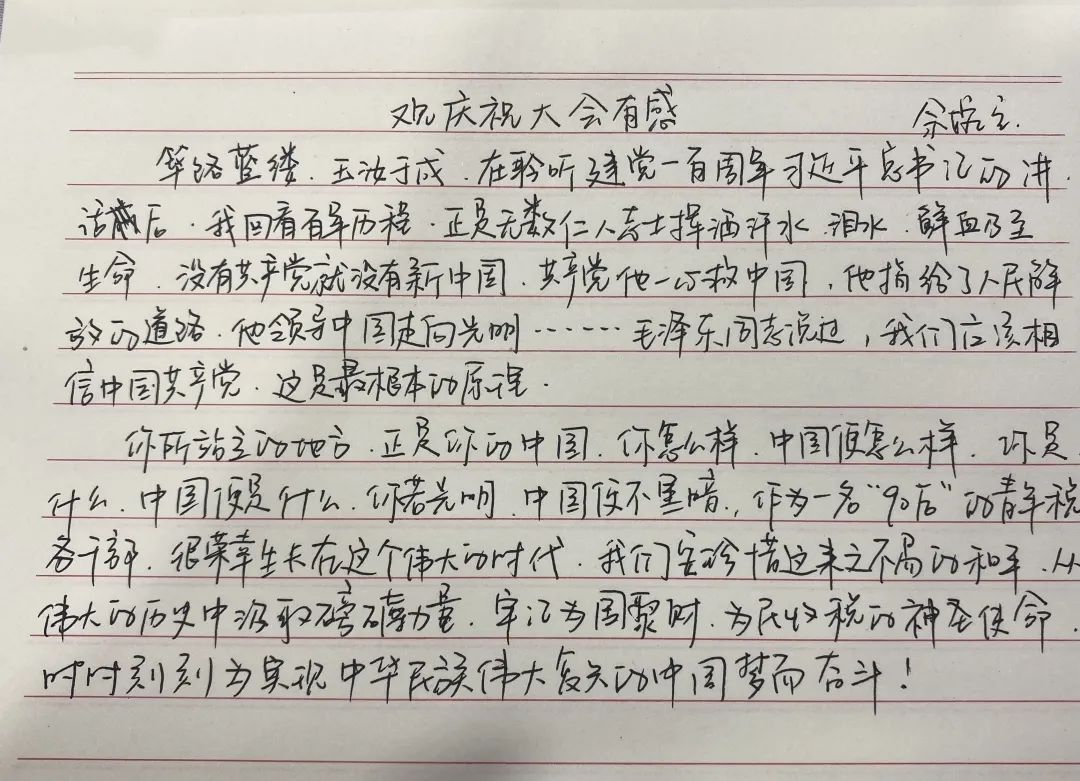 观庆祝大会有感
筚路蓝缕.玉汝于成.在聆听建党一百周年习近平总书记的讲
话后.我回看百年历程.正是无数仁人志士挥洒汗水.泪水.鲜血乃至
生命.没有共产党就没有新中国.共产党他一心救中国,他指给了人民解
放的道路.他领导中国走向光明……毛泽东同志说过,我们应该相
信中国共产党.这是最根本的原理.
你所站立的地方.正是你的中国.你怎么样.中国便怎么样.你是
什么.中国便是什么.你若光明.中国便不黑暗.,作为一名“90后”的青年税
务干部.很荣幸生长在这个伟大的时代.我们宜珍惜这来之不易的和平.从
伟大的历史中汲取磅礴力量.牢记为国聚财.为民收税的神圣使命.
时时刻刻为实现中华民族伟大复兴的中国梦而奋斗!